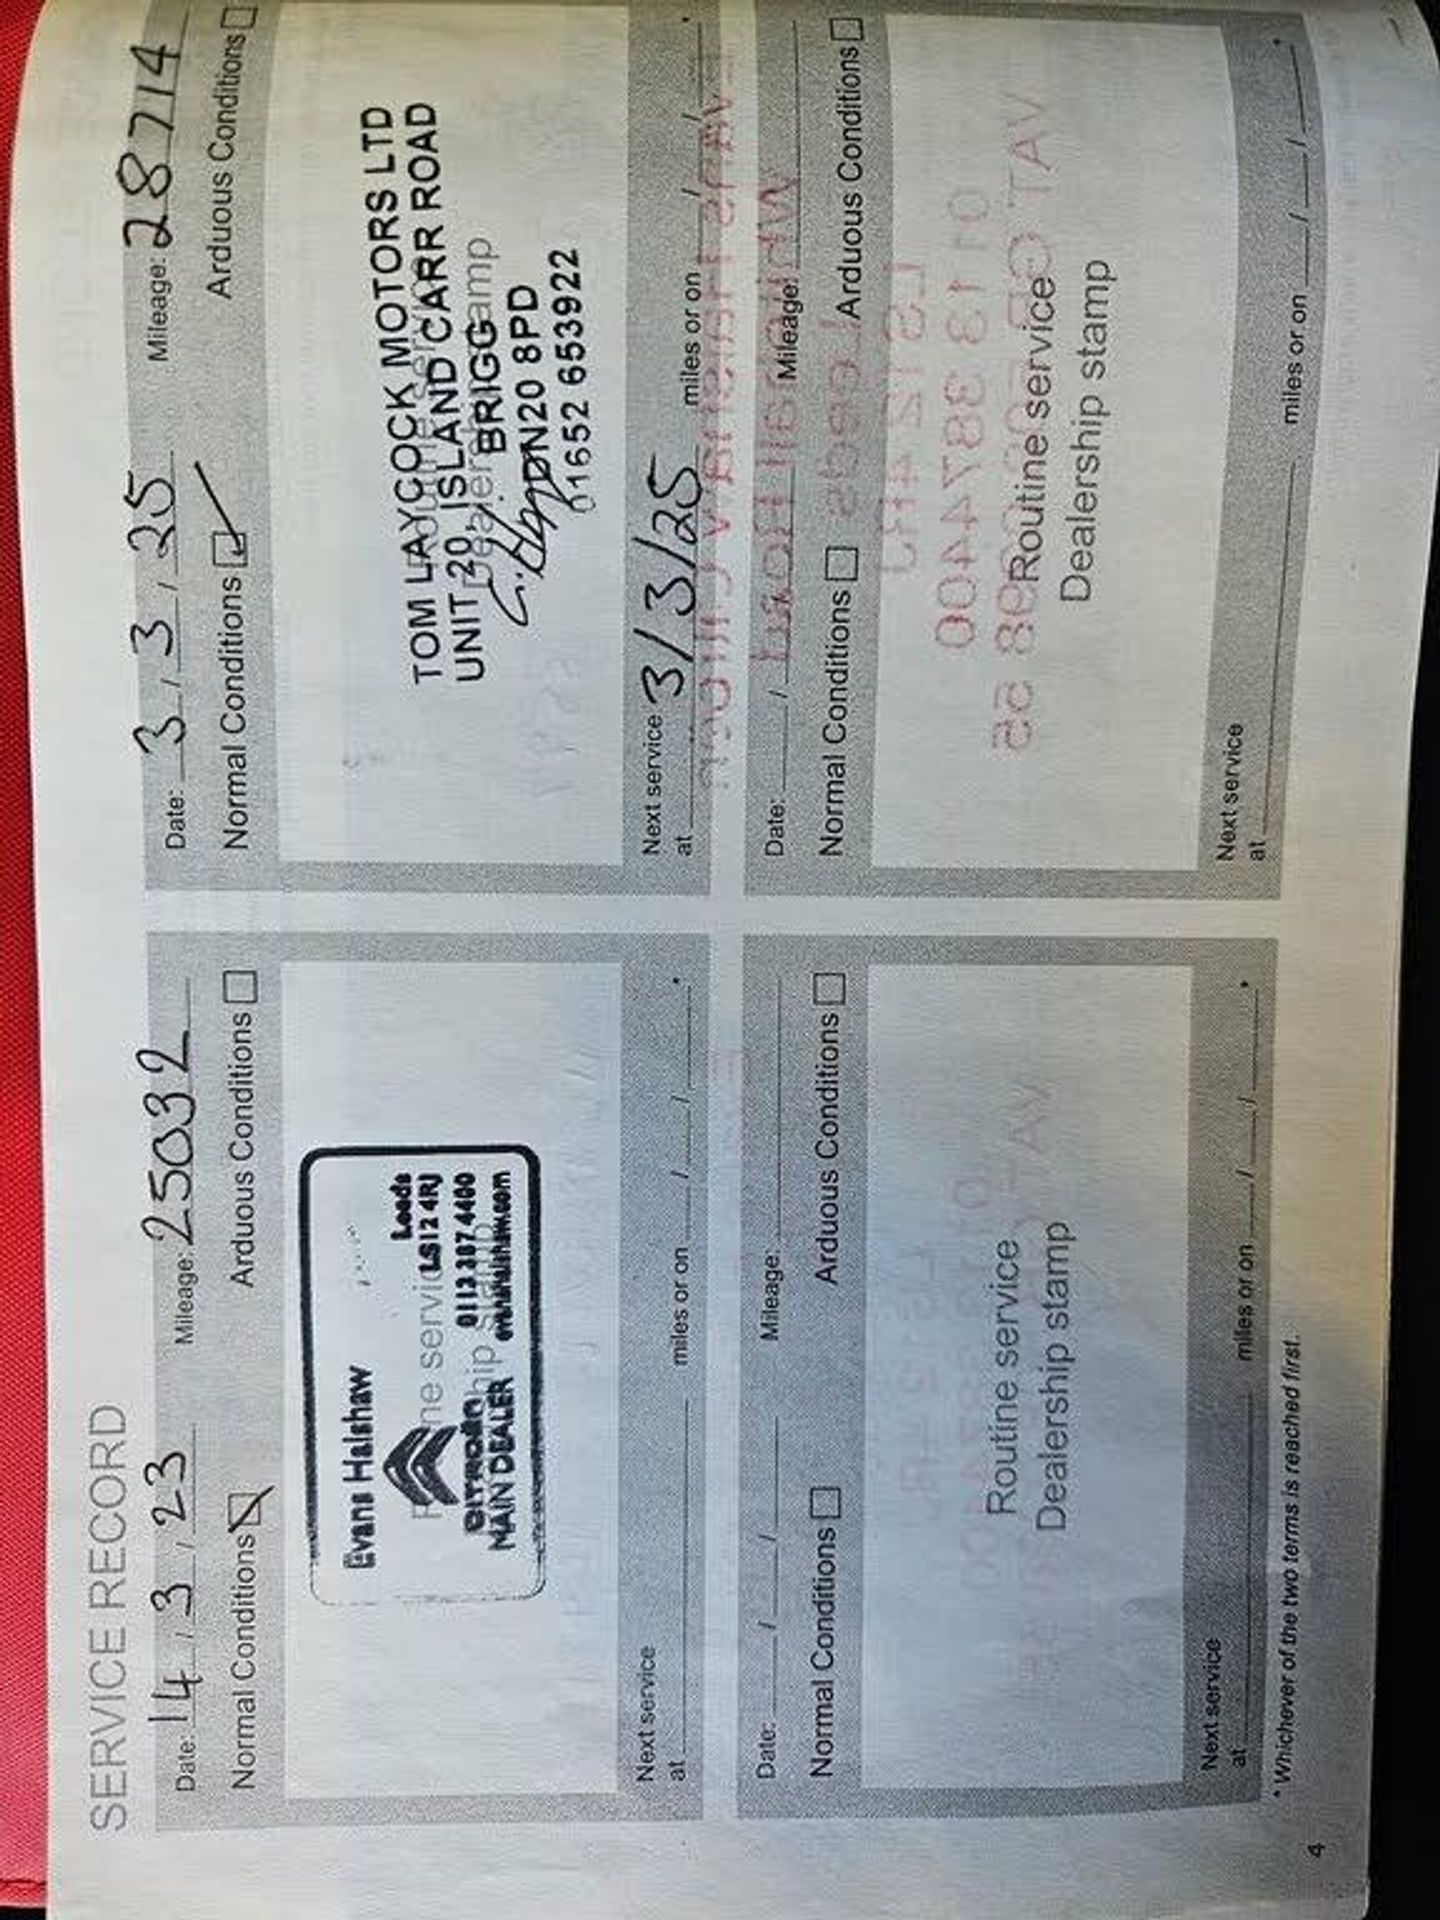 SERVICE RECORD
Date: 14 / 3 / 23 Mileage: 25032
Normal Conditions Arduous Conditions
Evans Halshaw
Leeds
LS12 4RJ
CITROËN 0113 387 4400
MAIN DEALER evanshalshaw.com
Next service
at miles or on / / *
Date: 3 / 3 / 25 Mileage: 28714
Normal Conditions Arduous Conditions
TOM LAYCOCK MOTORS LTD
UNIT 20, ISLAND CARR ROAD
BRIGG
DN20 8PD
01652 653922
Next service 3/3/25
at miles or on / / *
Date: / / Mileage:
Normal Conditions Arduous Conditions
Routine service
Dealership stamp
Next service
at miles or on / / *
Date: / / Mileage:
Normal Conditions Arduous Conditions
Routine service
Dealership stamp
Next service
at miles or on / / *
* Whichever of the two terms is reached first.
4